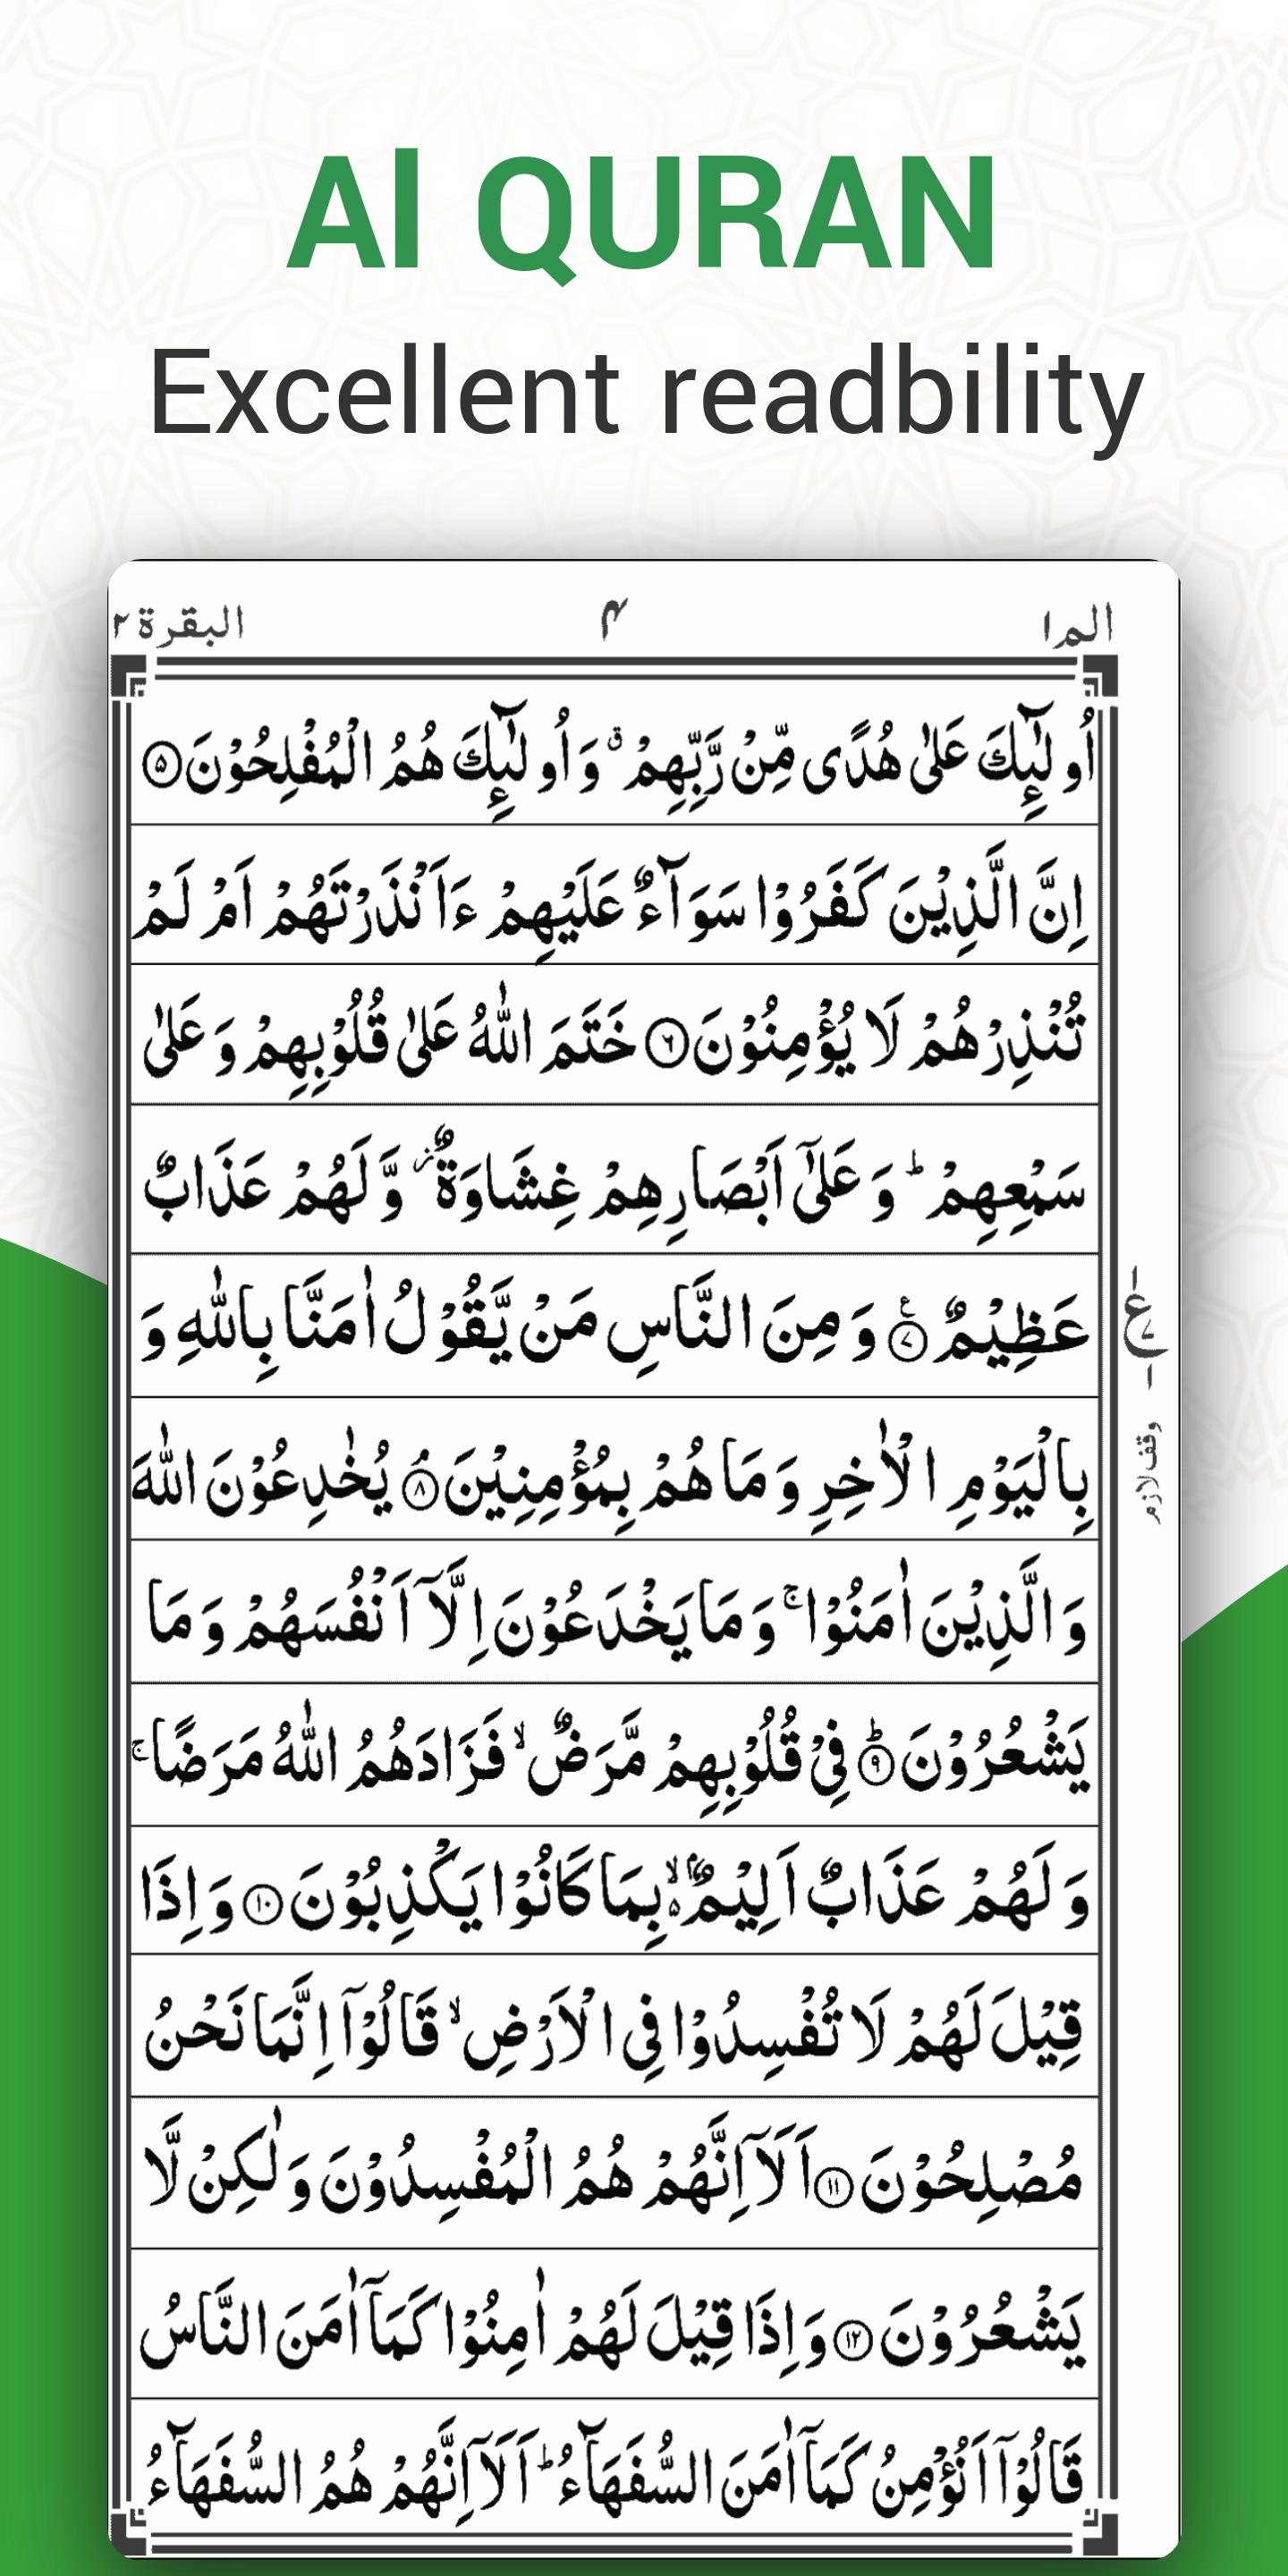 Al QURAN
Excellent readbility
الم ۱
۴
البقرة ۲
اُولٰٓئِكَ عَلٰى هُدًى مِّنْ رَّبِّهِمْ ۗ وَ اُولٰٓئِكَ هُمُ الْمُفْلِحُوْنَ ۵
اِنَّ الَّذِيْنَ كَفَرُوْا سَوَآءٌ عَلَيْهِمْ ءَاَنْذَرْتَهُمْ اَمْ لَمْ
تُنْذِرْهُمْ لَا يُؤْمِنُوْنَ ۶ خَتَمَ اللّٰهُ عَلٰى قُلُوْبِهِمْ وَ عَلٰى
سَمْعِهِمْ ؕ وَ عَلٰٓى اَبْصَارِهِمْ غِشَاوَةٌ ؗ وَّ لَهُمْ عَذَابٌ
عَظِيْمٌ ۷ ع وَ مِنَ النَّاسِ مَنْ يَّقُوْلُ اٰمَنَّا بِاللّٰهِ وَ
ع ۷
بِالْيَوْمِ الْاٰخِرِ وَ مَا هُمْ بِمُؤْمِنِيْنَ ۘ ۸ يُخٰدِعُوْنَ اللّٰهَ
وقف لازم
وَ الَّذِيْنَ اٰمَنُوْا ۚ وَ مَا يَخْدَعُوْنَ اِلَّآ اَنْفُسَهُمْ وَ مَا
يَشْعُرُوْنَ ؕ ۹ فِيْ قُلُوْبِهِمْ مَّرَضٌ ۙ فَزَادَهُمُ اللّٰهُ مَرَضًا ۚ
وَ لَهُمْ عَذَابٌ اَلِيْمٌۢ ۙ۬ بِمَا كَانُوْا يَكْذِبُوْنَ ۱۰ وَ اِذَا
قِيْلَ لَهُمْ لَا تُفْسِدُوْا فِي الْاَرْضِ ۙ قَالُوْٓا اِنَّمَا نَحْنُ
مُصْلِحُوْنَ ۱۱ اَلَآ اِنَّهُمْ هُمُ الْمُفْسِدُوْنَ وَ لٰكِنْ لَّا
يَشْعُرُوْنَ ۱۲ وَ اِذَا قِيْلَ لَهُمْ اٰمِنُوْا كَمَآ اٰمَنَ النَّاسُ
قَالُوْٓا اَنُؤْمِنُ كَمَآ اٰمَنَ السُّفَهَآءُ ؕ اَلَآ اِنَّهُمْ هُمُ السُّفَهَآءُ